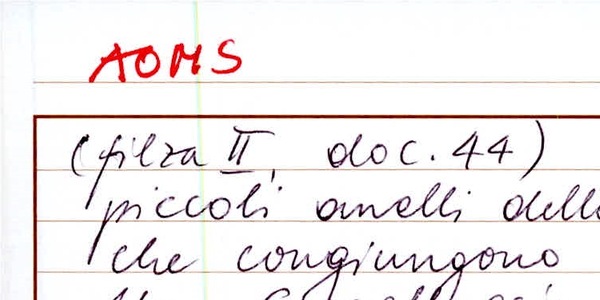 AOMS
(filza II, doc. 44)
piccoli anelli dell
che congiungono